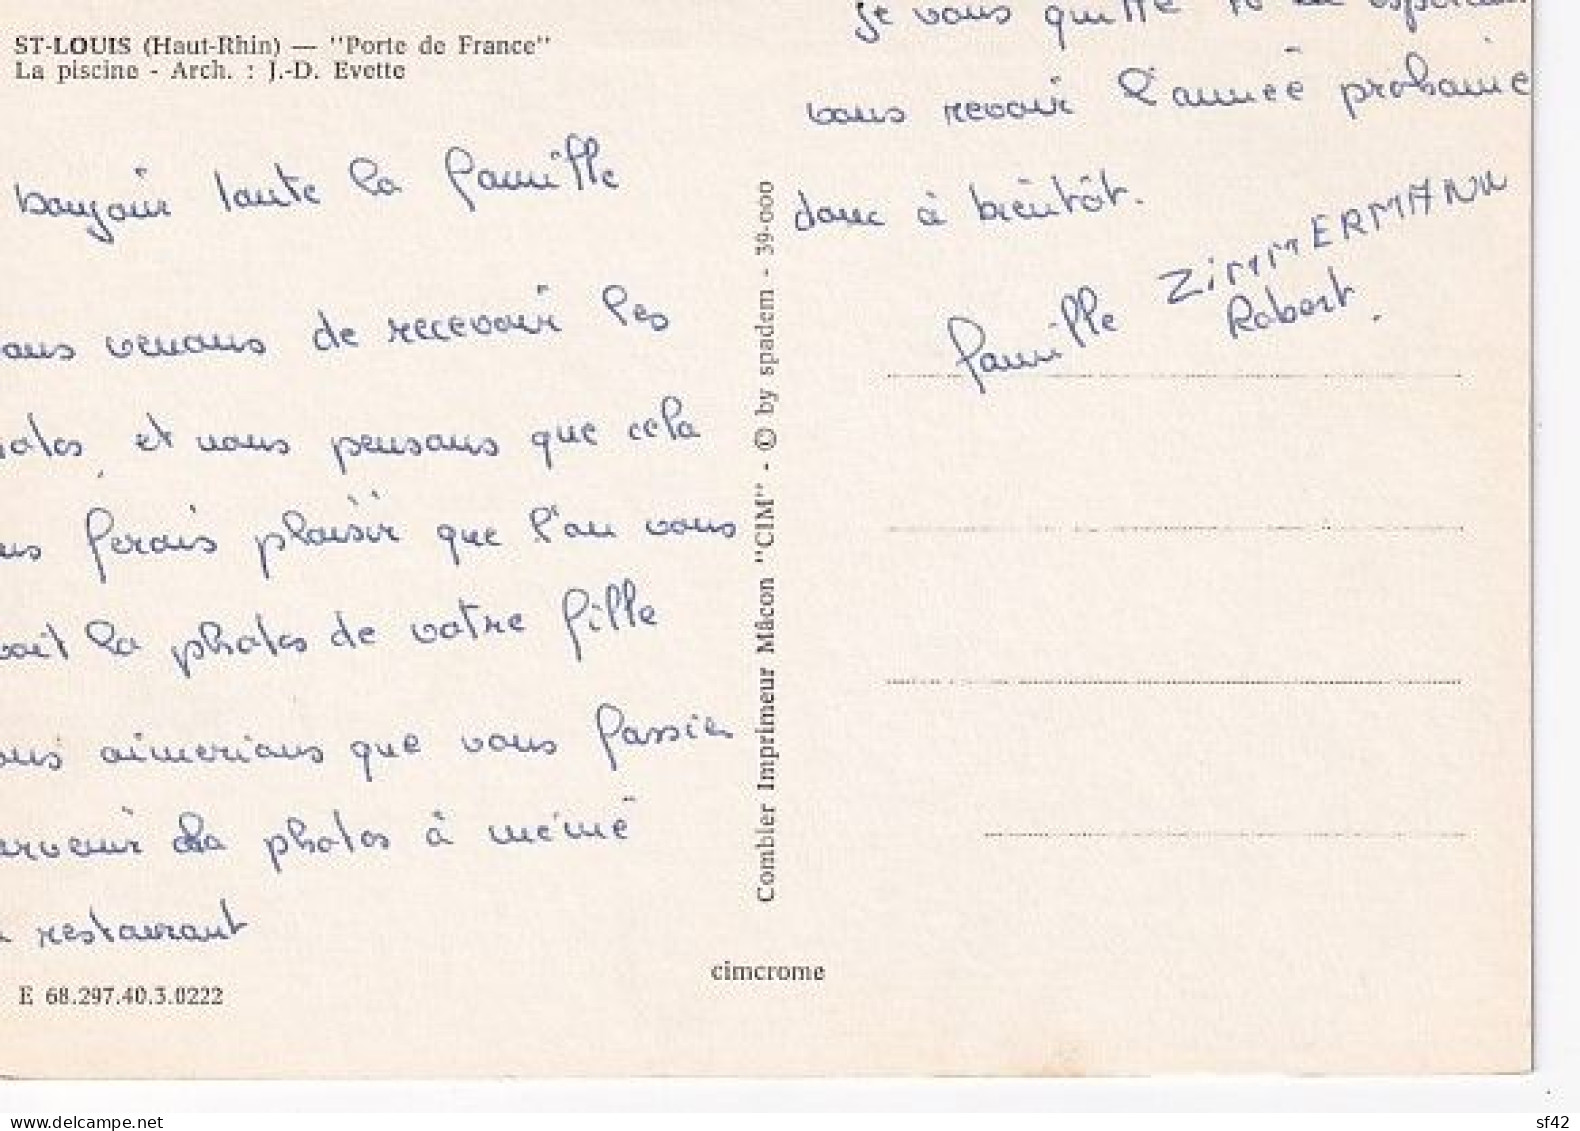 ST-LOUIS (Haut-Rhin) — "Porte de France"
La piscine - Arch. : J.-D. Evette
bonjour toute la famille
ous venons de recevoir les
hotos, et nous pensons que cela
us ferais plaisir que l'on vous
voit la photos de votre fille
ous aimerions que vous fassier
arvenir la photos à mémé
restaurant
E 68.297.40.3.0222
Combier Imprimeur Mâcon "CIM" - © by spadem - 39-000
cimcrome
Je vous quitte
vous revoir l'année prohaine
donc à bientôt.
famille ZIMMERMANN
Robert.
delcampe.net
sf42